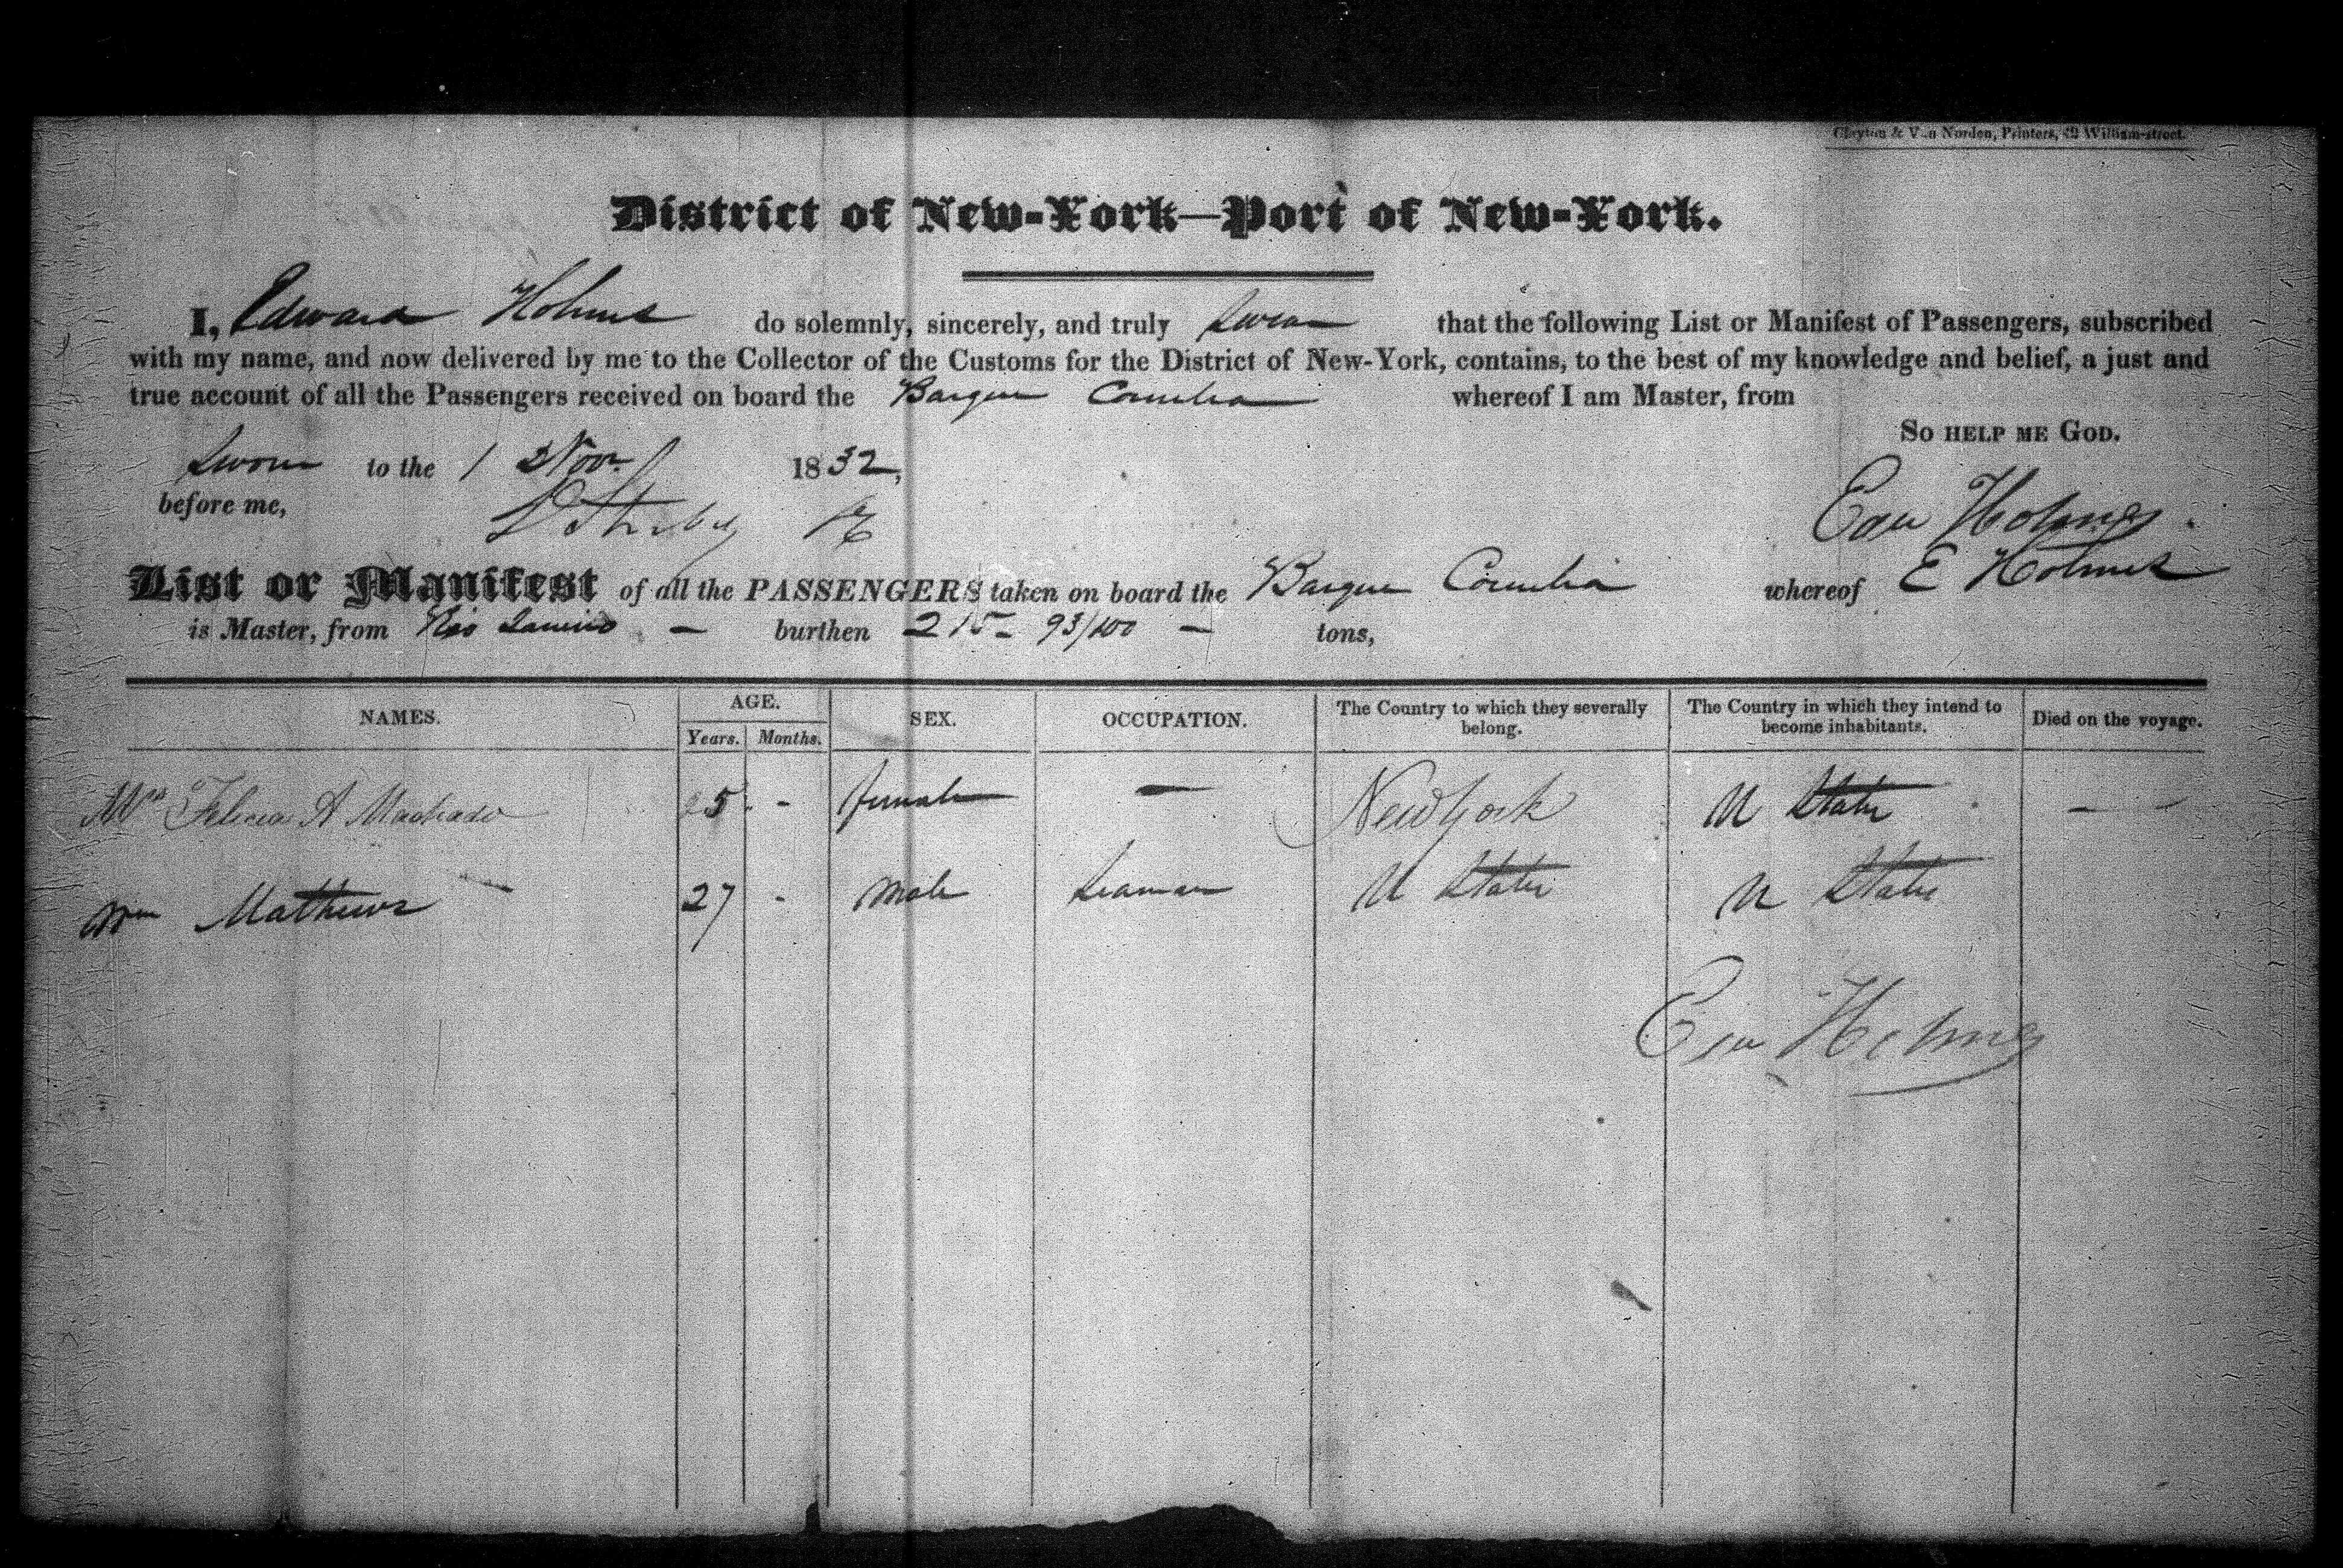 Clayton & Van Norden, Printers, 49 William-street.
District of New-York—Port of New-York.
I, Edward Holmes do solemnly, sincerely, and truly swear that the following List or Manifest of Passengers, subscribed
with my name, and now delivered by me to the Collector of the Customs for the District of New-York, contains, to the best of my knowledge and belief, a just and
true account of all the Passengers received on board the Barque Cornelia whereof I am Master, from
So help me God.
Sworn to the 1 Nov. 1832,
before me,
Edw Holmes.
List or Manifest of all the PASSENGERS taken on board the Barque Cornelia whereof E Holmes
is Master, from Rio Janeiro — burthen 215- 93/100 — tons,
NAMES. AGE. SEX. OCCUPATION. The Country to which they severally belong. The Country in which they intend to become inhabitants. Died on the voyage.
Years. Months.
Mrs Felicia A Machado 25 - female — New York U States — -
Wm Mathews 27 - male Seaman U States U States
Edw Holmes